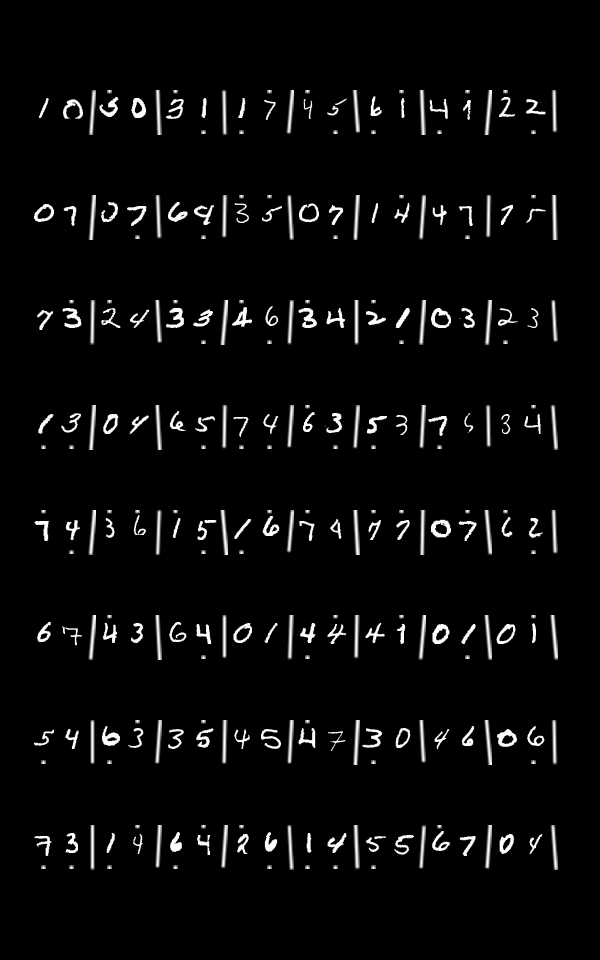 1 0 | 3 0 | 3 1 | 1 7 | 4 5 | 6 1 | 4 1 | 2 2 |
0 7 | 0 7 | 6 4 | 3 5 | 0 7 | 1 4 | 4 7 | 7 5 |
7 3 | 2 4 | 3 3 | 4 6 | 3 4 | 2 1 | 0 3 | 2 3 |
1 3 | 0 4 | 6 5 | 7 4 | 6 3 | 5 3 | 7 5 | 3 4 |
7 4 | 3 6 | 1 5 | 1 6 | 7 4 | 7 7 | 0 7 | 6 2 |
6 7 | 4 3 | 6 4 | 0 1 | 4 4 | 4 1 | 0 1 | 0 1 |
5 4 | 6 3 | 3 5 | 4 5 | 4 7 | 3 0 | 4 6 | 0 6 |
7 3 | 1 4 | 6 4 | 2 6 | 1 4 | 5 5 | 6 7 | 0 4 |